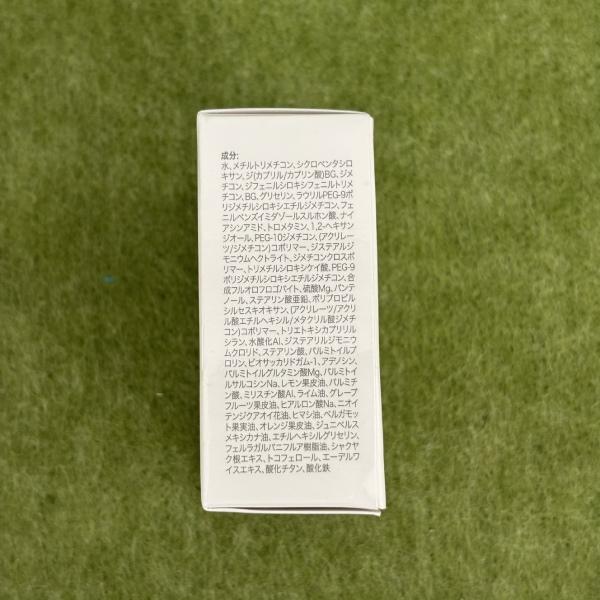 成分:
水、メチルトリメチコン、シクロペンタシロ
キサン、ジ(カプリル/カプリン酸)BG、ジメチ
コン、ジフェニルシロキシフェニルトリメチ
コン、BG、グリセリン、ラウリルPEG-9ポ
リジメチルシロキシエチルジメチコン、フェ
ニルベンズイミダゾールスルホン酸、ナイ
アシンアミド、トロメタミン、1,2-ヘキサン
ジオール、PEG-10ジメチコン、(アクリレー
ツ/ジメチコン)コポリマー、ジステアルジ
モニウムヘクトライト、ジメチコンクロスポ
リマー、トリメチルシロキシケイ酸、PEG-9
ポリジメチルシロキシエチルジメチコン、合
成フルオロフロゴパイト、硫酸Mg、パンテ
ノール、ステアリン酸亜鉛、ポリプロピル
シルセスキオキサン、(アクリレーツ/アクリ
ル酸エチルヘキシル/メタクリル酸ジメチ
コン)コポリマー、トリエトキシカプリリル
シラン、水酸化Al、ジステアリルジモニウ
ムクロリド、ステアリン酸、パルミトイルプ
ロリン、ビオサッカリドガム-1、アデノシン、
パルミトイルグルタミン酸Mg、パルミトイ
ルサルコシンNa、レモン果皮油、パルミチ
ン酸、ミリスチン酸Al、ライム油、グレープ
フルーツ果皮油、ヒアルロン酸Na、ニオイ
テンジクアオイ花油、ヒマシ油、ベルガモッ
ト果実油、オレンジ果皮油、ジュニペルス
メキシカナ油、エチルヘキシルグリセリン、
フェルラガルバニフルア樹脂油、シャクヤ
ク根エキス、トコフェロール、エーデルワ
イスエキス、酸化チタン、酸化鉄